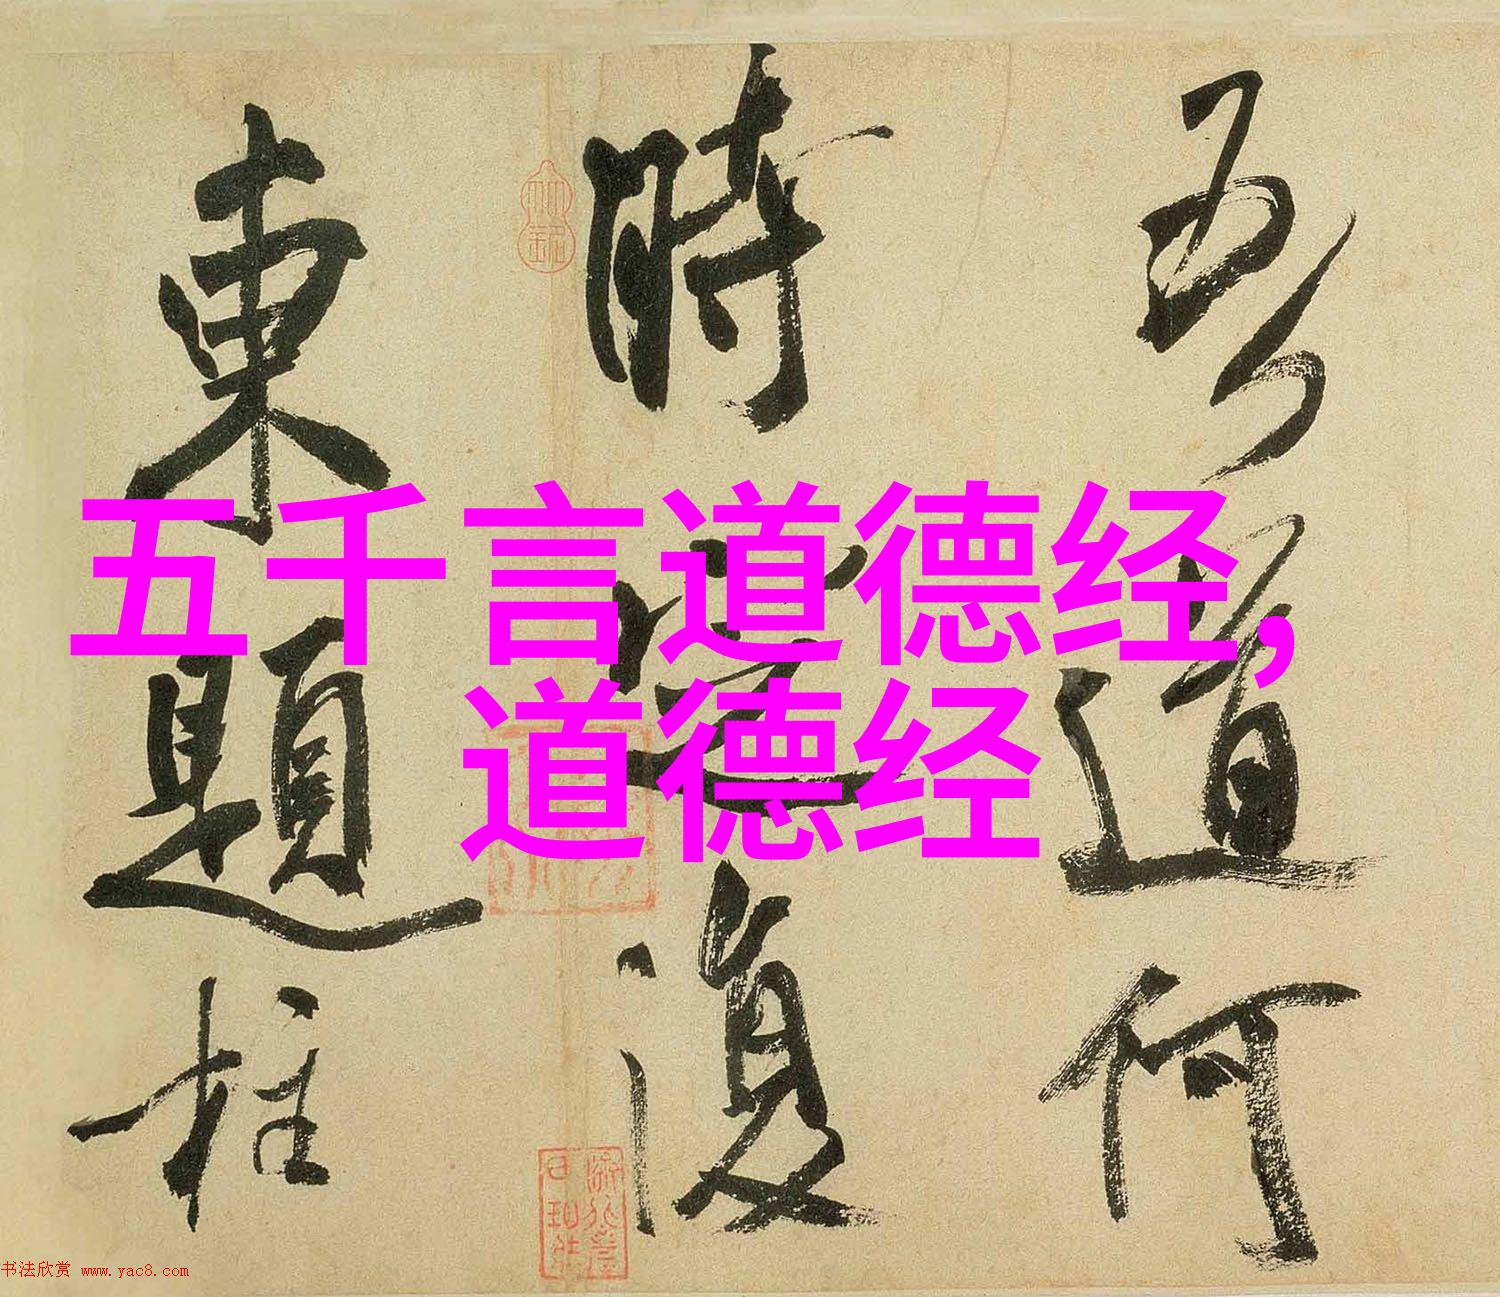 吾道何
時還復
東題柱
五千言道德经,
道德经
书法欣赏 www.yac8.com